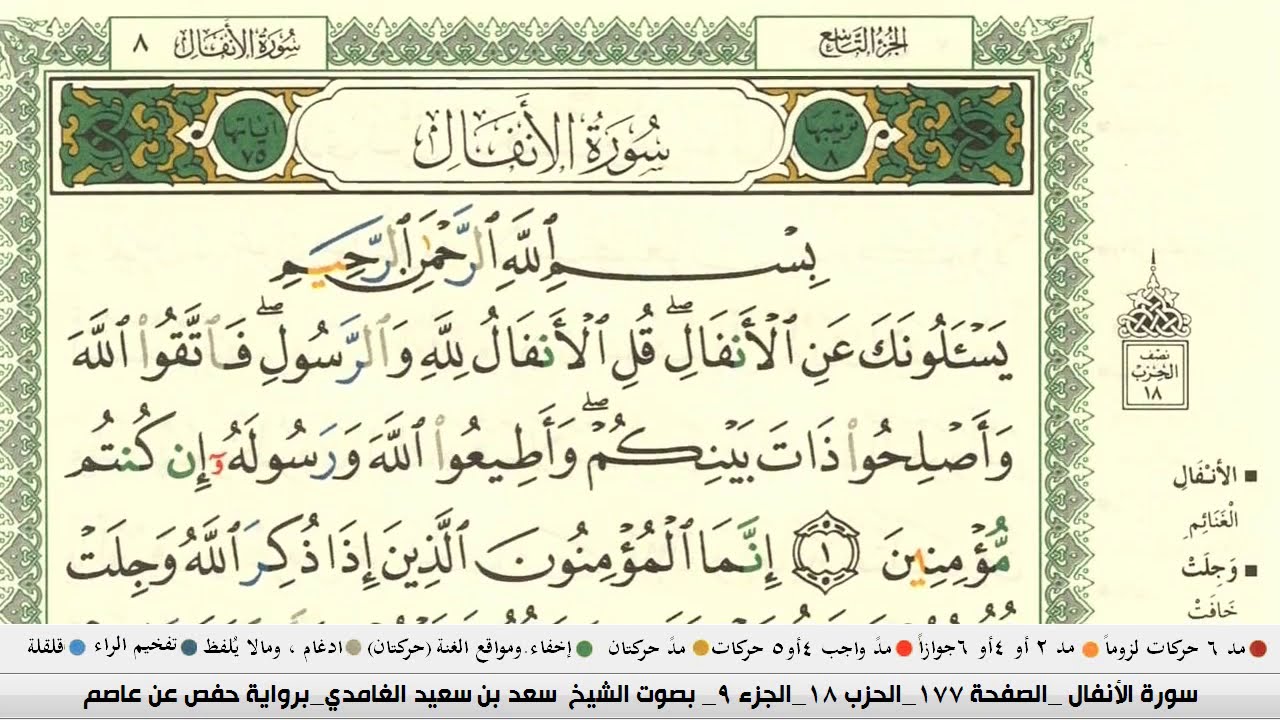 الجزء التاسع
سورة الأنفال ٨
ترتيبها ٨
سُورَةُ الأَنفَالِ
آياتها ٧٥
بِسْمِ ٱللَّهِ ٱلرَّحْمَٰنِ ٱلرَّحِيمِ
يَسْـَٔلُونَكَ عَنِ ٱلْأَنفَالِ ۖ قُلِ ٱلْأَنفَالُ لِلَّهِ وَٱلرَّسُولِ ۖ فَٱتَّقُوا۟ ٱللَّهَ
وَأَصْلِحُوا۟ ذَاتَ بَيْنِكُمْ ۖ وَأَطِيعُوا۟ ٱللَّهَ وَرَسُولَهُۥٓ إِن كُنتُم
مُّؤْمِنِينَ ١ إِنَّمَا ٱلْمُؤْمِنُونَ ٱلَّذِينَ إِذَا ذُكِرَ ٱللَّهُ وَجِلَتْ
نصف
الحزب
١٨
■ الأَنْفَالِ
الْغَنَائِمِ
■ وَجِلَتْ
خَافَتْ
مد ٦ حركات لزوماً مد ٢ أو ٤أو ٦جوازاً مدّ واجب ٤أو٥ حركات مدّ حركتان إخفاء.ومواقع الغنة (حركتان) ادغام ، ومالا يُلفظ تفخيم الراء قلقلة
سورة الأنفال _الصفحة ١٧٧_الحزب ١٨_الجزء ٩_ بصوت الشيخ سعد بن سعيد الغامدي_برواية حفص عن عاصم